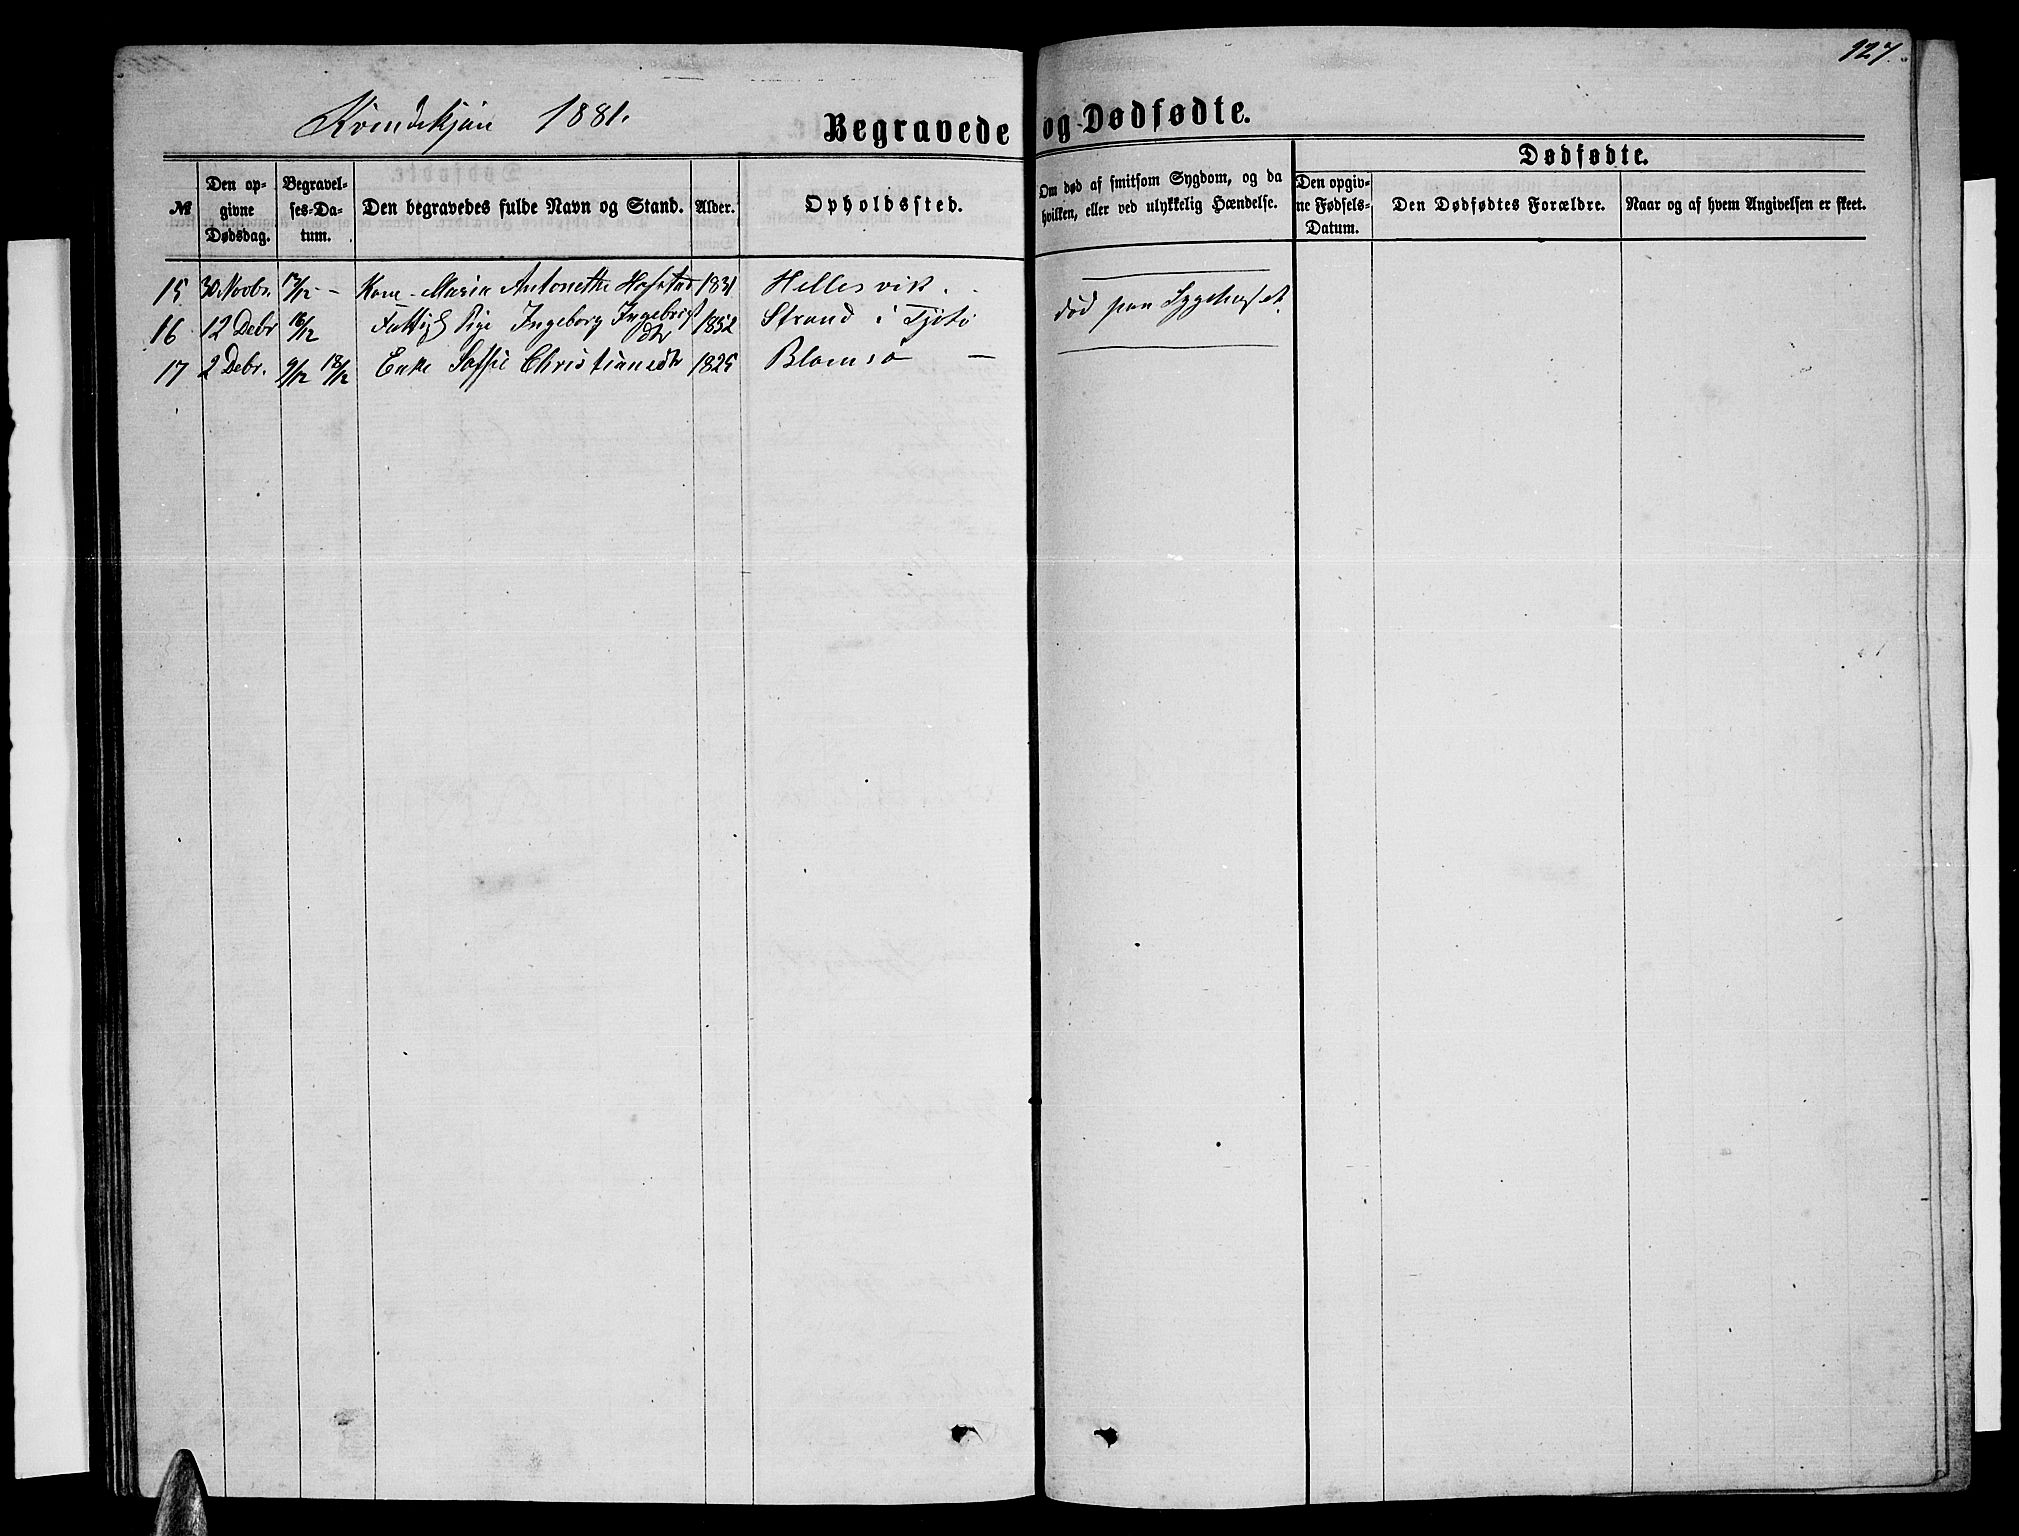 127.
Kvindekjøn 1881.
Begravede og Dødfødte.
№
Den opgivne Dødsdag.
Begravelses-Datum.
Den begravedes fulde Navn og Stand.
Alder.
Opholdssted.
Om død af smitsom Sygdom, og da hvilken, eller ved ulykkelig Hændelse.
Dødfødte.
Den opgivne Fødsels-Datum.
Den Dødfødtes Forældre.
Naar og af hvem Angivelsen er skeet.
15 30 Novbr 17/12 – Kone Maria Antonette Hofstad 1831 Hellesvik.
16 12 Debr 16/12 Fattig Pige Ingeborg Ingebrigtdtr 1852 Strand i Tjøtø død paa Sygehuset.
17 2 Debr. 9/12 18/12 Enke Soffie Christiansdtr 1825 Blomsø —